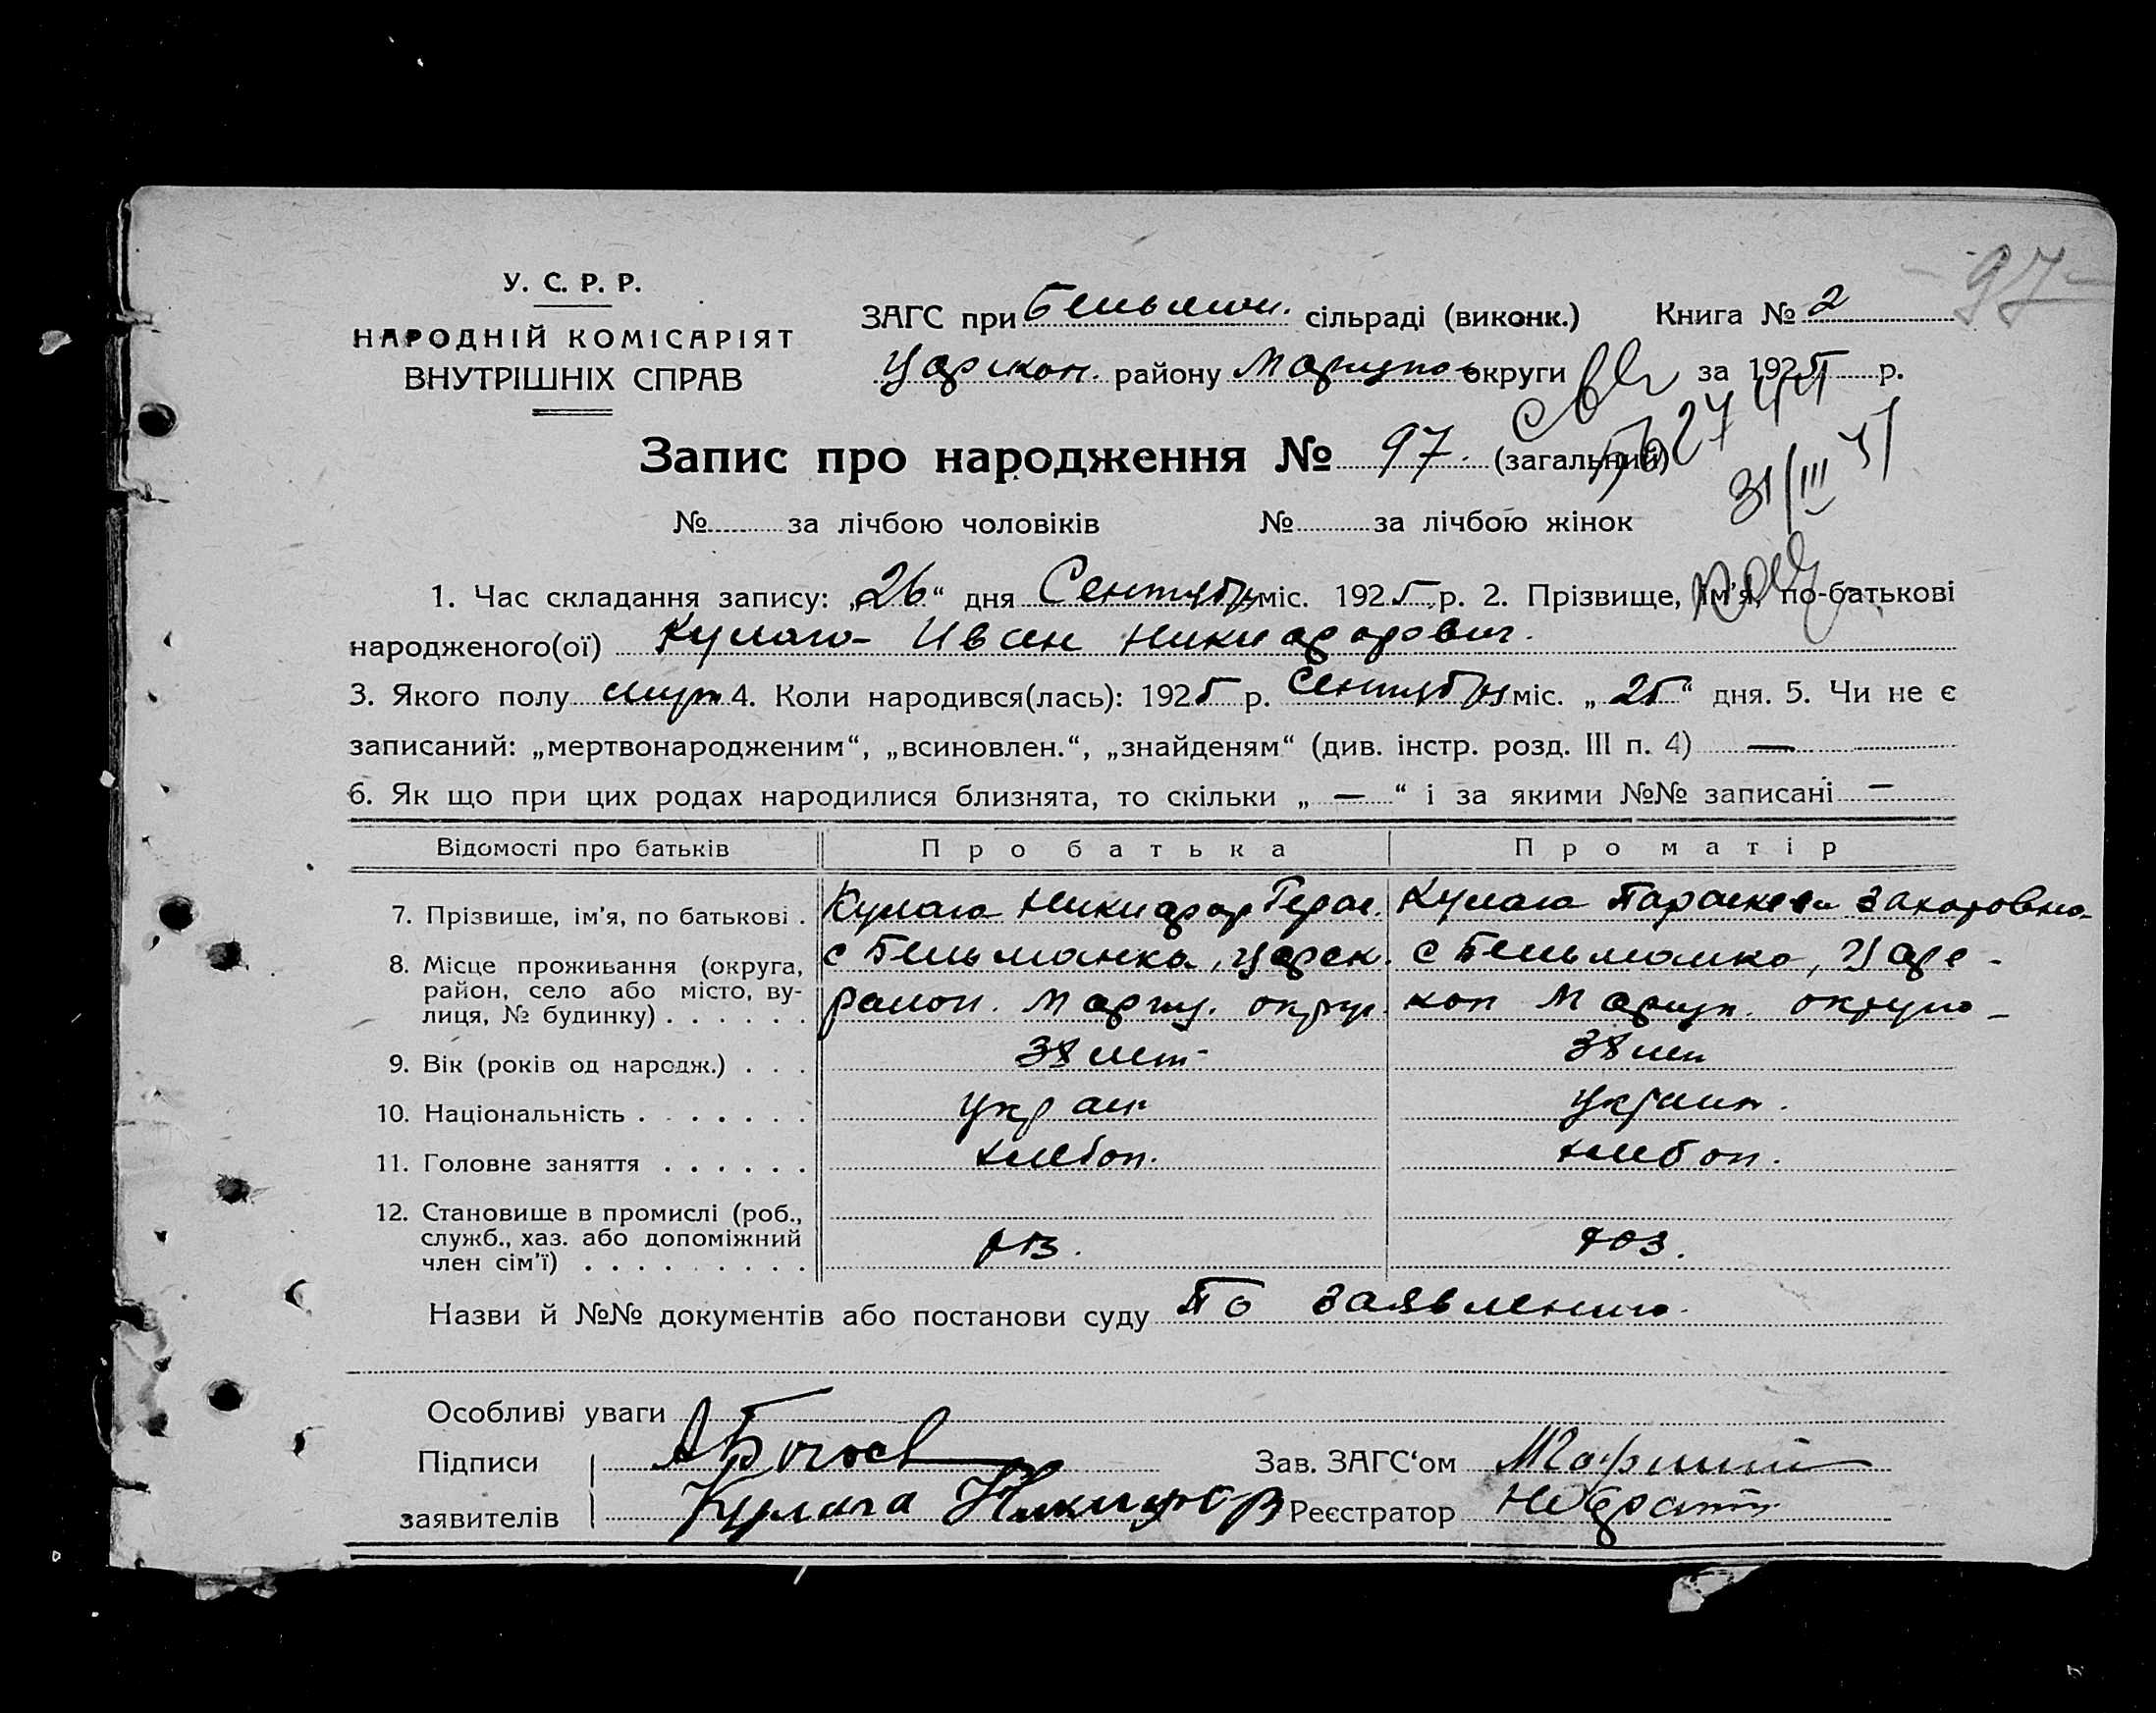 97
У. С. Р. Р.
НАРОДНІЙ КОМІСАРІЯТ
ВНУТРІШНІХ СПРАВ
ЗАГС при Бельман. сільраді (виконк.) Книга № 2
Царикон. району Мариупо округи за 1925 р.
Запис про народження № 97. (загальний)
31/III 41
№ за лічбою чоловіків № за лічбою жінок
1. Час складання запису: „26“ дня Сентября міс. 1925 р. 2. Прізвище, ім'я, по-батькові
народженого(ої) Кулага Иван Никифорович.
3. Якого полу муж 4. Коли народився(лась): 1925 р. Сентября міс. „25“ дня. 5. Чи не є
записаний: „мертвонародженим“, „всиновлен.“, „знайденям“ (див. інстр. розд. III п. 4) —
6. Як що при цих родах народилися близнята, то скільки „—“ і за якими №№ записані —
Відомості про батьків Про батька Про матір
7. Прізвище, ім'я, по батькові . Кулага Никифор Герас. Кулага Параскева Захаровна
8. Місце проживання (округа, с Бельманка, Царек. с Бельманка, Царе-
район, село або місто, ву-
лиця, № будинку) . . . . . . район. Мариу. округ. кон Мариуп. округа
9. Вік (років од народж.) . . . 38 лет 38 лет
10. Національність . . . . . . . украин украин.
11. Головне заняття . . . . . . хлебоп. хлебоп.
12. Становище в промислі (роб.,
служб., хаз. або допоміжний хоз. хоз.
член сім'ї) . . . . . . . . .
Назви й №№ документів або постанови суду По заявлению
Особливі уваги
Підписи Зав. ЗАГС‘ом
заявителів Кулага Никифор Реєстратор